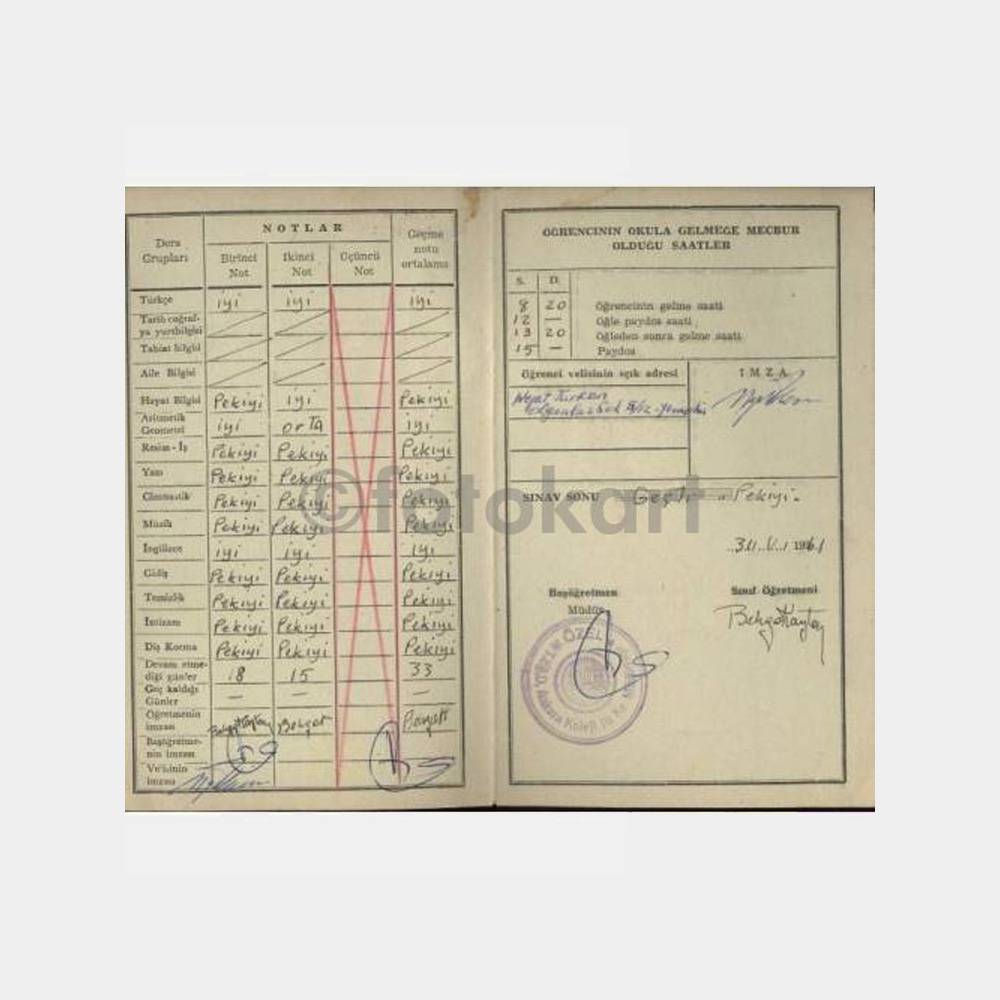 NOTLAR
Ders Grupları
Birinci Not
İkinci Not
Üçüncü Not
Geçme notu ortalama
Türkçe iyi iyi iyi
Tarih coğraf-
ya yurtbilgisi
Tabiat bilgisi
Aile Bilgisi
Hayat Bilgisi Pekiyi iyi Pekiyi
Aritmetik
Geometri iyi orta iyi
Resim - İş Pekiyi Pekiyi Pekiyi
Yazı Pekiyi Pekiyi Pekiyi
Cimnastik Pekiyi Pekiyi Pekiyi
Müzik Pekiyi Pekiyi Pekiyi
İngilizce iyi iyi iyi
Gidiş Pekiyi Pekiyi Pekiyi
Temizlik Pekiyi Pekiyi Pekiyi
İntizam Pekiyi Pekiyi Pekiyi
Diş Korma Pekiyi Pekiyi Pekiyi
Devam etme-
diği günler 18 15 33
Geç kaldığı
Günler — — —
Öğretmenin
imzası Behçet
Başöğretme-
nin imzası
Velisinin
imzası
ÖĞRENCİNİN OKULA GELMEĞE MECBUR
OLDUĞU SAATLER
S. D.
8 20 Öğrencinin gelme saati
12 — Öğle paydos saati
13 20 Öğleden sonra gelme saati
15 — Paydos
Öğrenci velisinin açık adresi
İMZA
SINAV SONU Geçti "Pekiyi.
1961
Başöğretmen
Müdür
Sınıf Öğretmeni
©fotokart